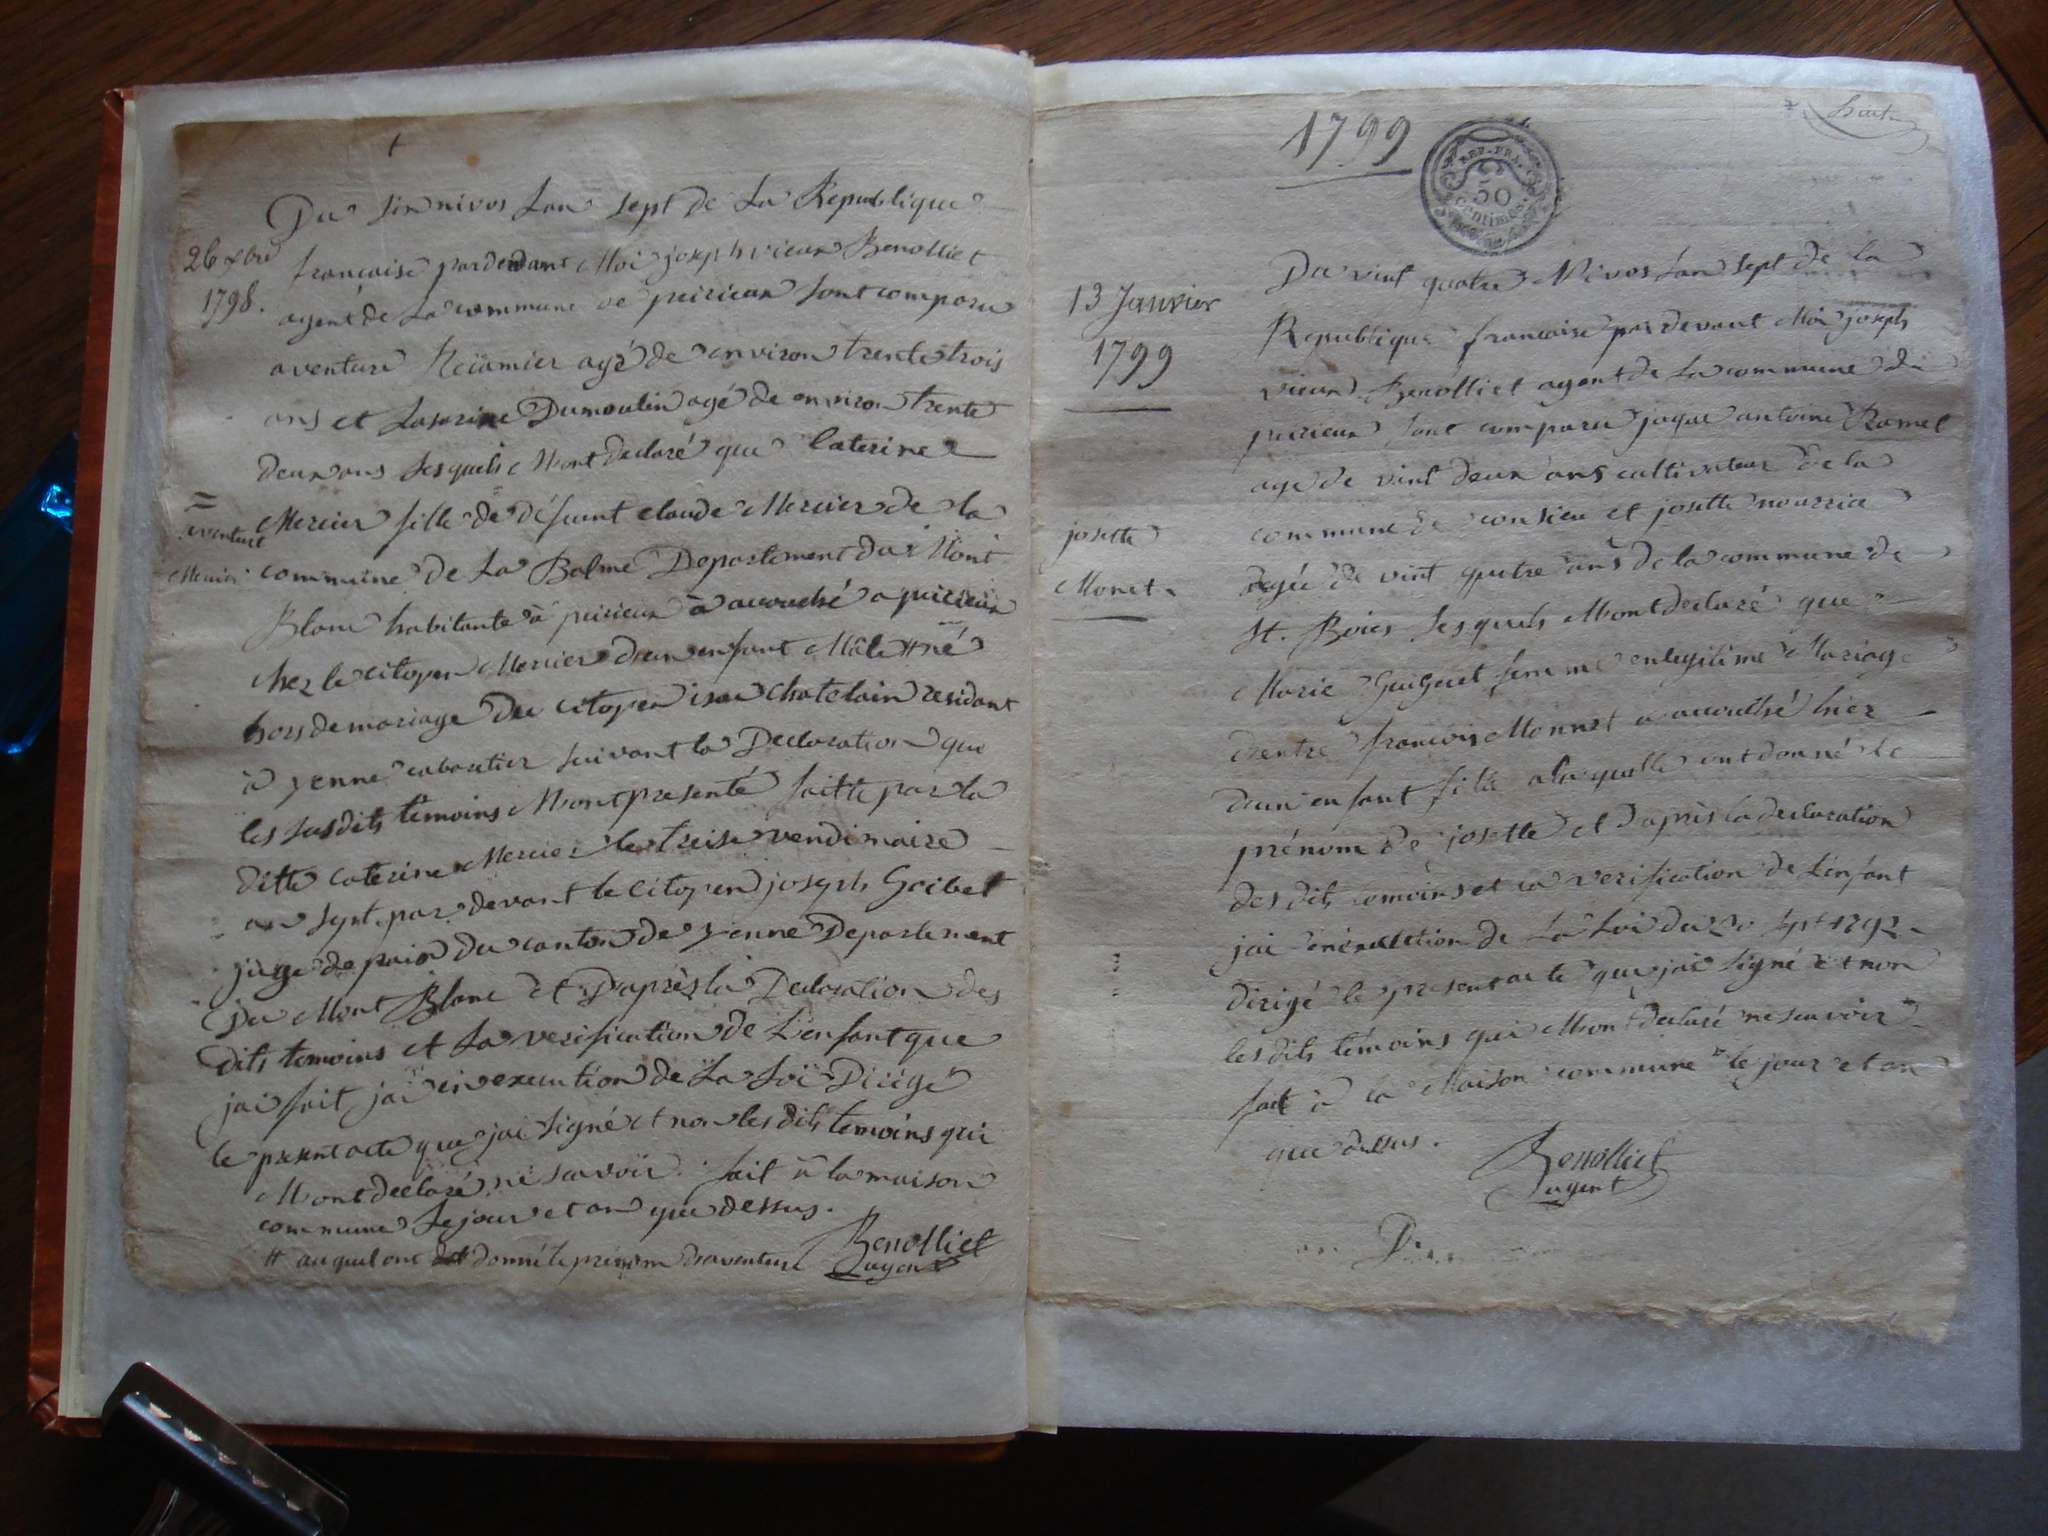 Du six nivos Lan sept de La Republique
26 xbre
1798.
francaise pardevant Moi joseph vieux Benolliet
agent de La commune de peirieux sont comparu
aventure Récamier agé de environ trente trois
ans et Dumoulin agé de environ trente
deux ans Lesquels Mont declaré que Caterine
= aventure Mercier
Mercier fille de défeunt claude Mercier de la
commune de La Balme Departement du Mont
Blanc habitante à peirieux à accouché a peirieux
chez le citoyen Mercier dun enfant Mâle # né
hors de mariage du citoyen chatelain residant
à yenne cabartier suivant la Declaration que
les susdits temoins Mont presenté faitte par la
ditte caterine Mercier le treise vendimaire
an sept par devant le citoyen joseph Goibet
juge de paix du canton de yenne Departement
Du Mont Blanc et D'après la Declaration des
dits temoins et La verification de L'enfant que
jai fait jai en execution de La Loi Dirigé
le present acte que jai signé et non les dits temoins qui
Mont declaré ne scavoir. fait à la maison
commune Le jour et an que dessus.
# auquel ont donné le prénom daventure
Benolliet
agent
1799
REP. FRA.
50
Centimes
huit
13 Janvier
1799
Du vint quatre Nivos Lan sept de la
Republique francaise par devant Moi joseph
vieux Benolliet agent de La commune de
peirieux sont comparu jaque antoine Ramel
age de vint deux ans cultivateur de la
josette
Monet
commune de consieu et josette nourrice
agée de vint quatre ans de la commune de
St. Bois Lesquels Mont declaré que
Marie Guiguet femme en legitime Mariage
dentre francois Monnet a accouché hier
dun enfant fille a laquelle ont donné le
prénom de josette et d'après la declaration
des dits temoins et la verification de L'enfant
jai en exécution de La Loi du 20 7pt 1792
dirigé le present acte que jai signé et non
les dits témoins qui Mont declaré ne scavoir
fait à la Maison commune le jour et an
que dessus.
Benolliet
agent